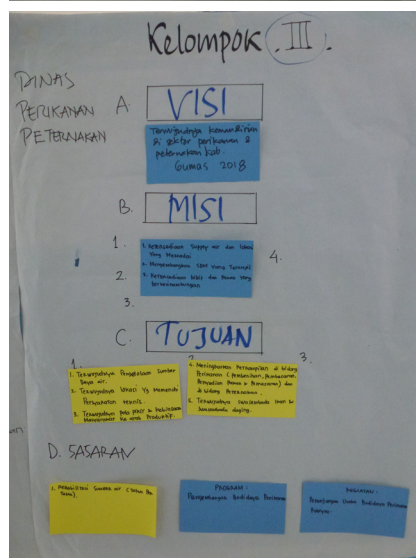 Kelompok III.
DINAS
PERIKANAN
PETERNAKAN
A. VISI
Terwujudnya kemandirian
di sektor perikanan &
peternakan kab.
Gumas 2018
B. MISI
1.
2.
3.
4.
1. Ketersediaan Supply air dan lokasi
Yang Memadai
2. Mengembangkan SDM Yang Terampil
3. Ketersediaan bibit dan Pakan Yang
berkesinambungan
C. TUJUAN
1.
2
3.
1. Terwujudnya Pengelolaan Sumber
Daya air.
2. Terwujudnya lokasi Yg Memenuhi
Persyaratan teknis.
3. Terwujudnya pola pikir & kebiasaan
Masyarakat ke arah Produktif.
4. Meningkatkan Ketrampilan di bidang
Perikanan (Pembenihan, Pembesaran,
Penyediaan Pakan & Pemasaran) dan
di bidang Peternakan.
5. Terwujudnya Swasembada Ikan &
Swasembada daging.
D. SASARAN
1. Rehabilitasi Sumber air
PROGRAM:
Pengembangan Budidaya Perikanan
KEGIATAN:
Budidaya Perikanan